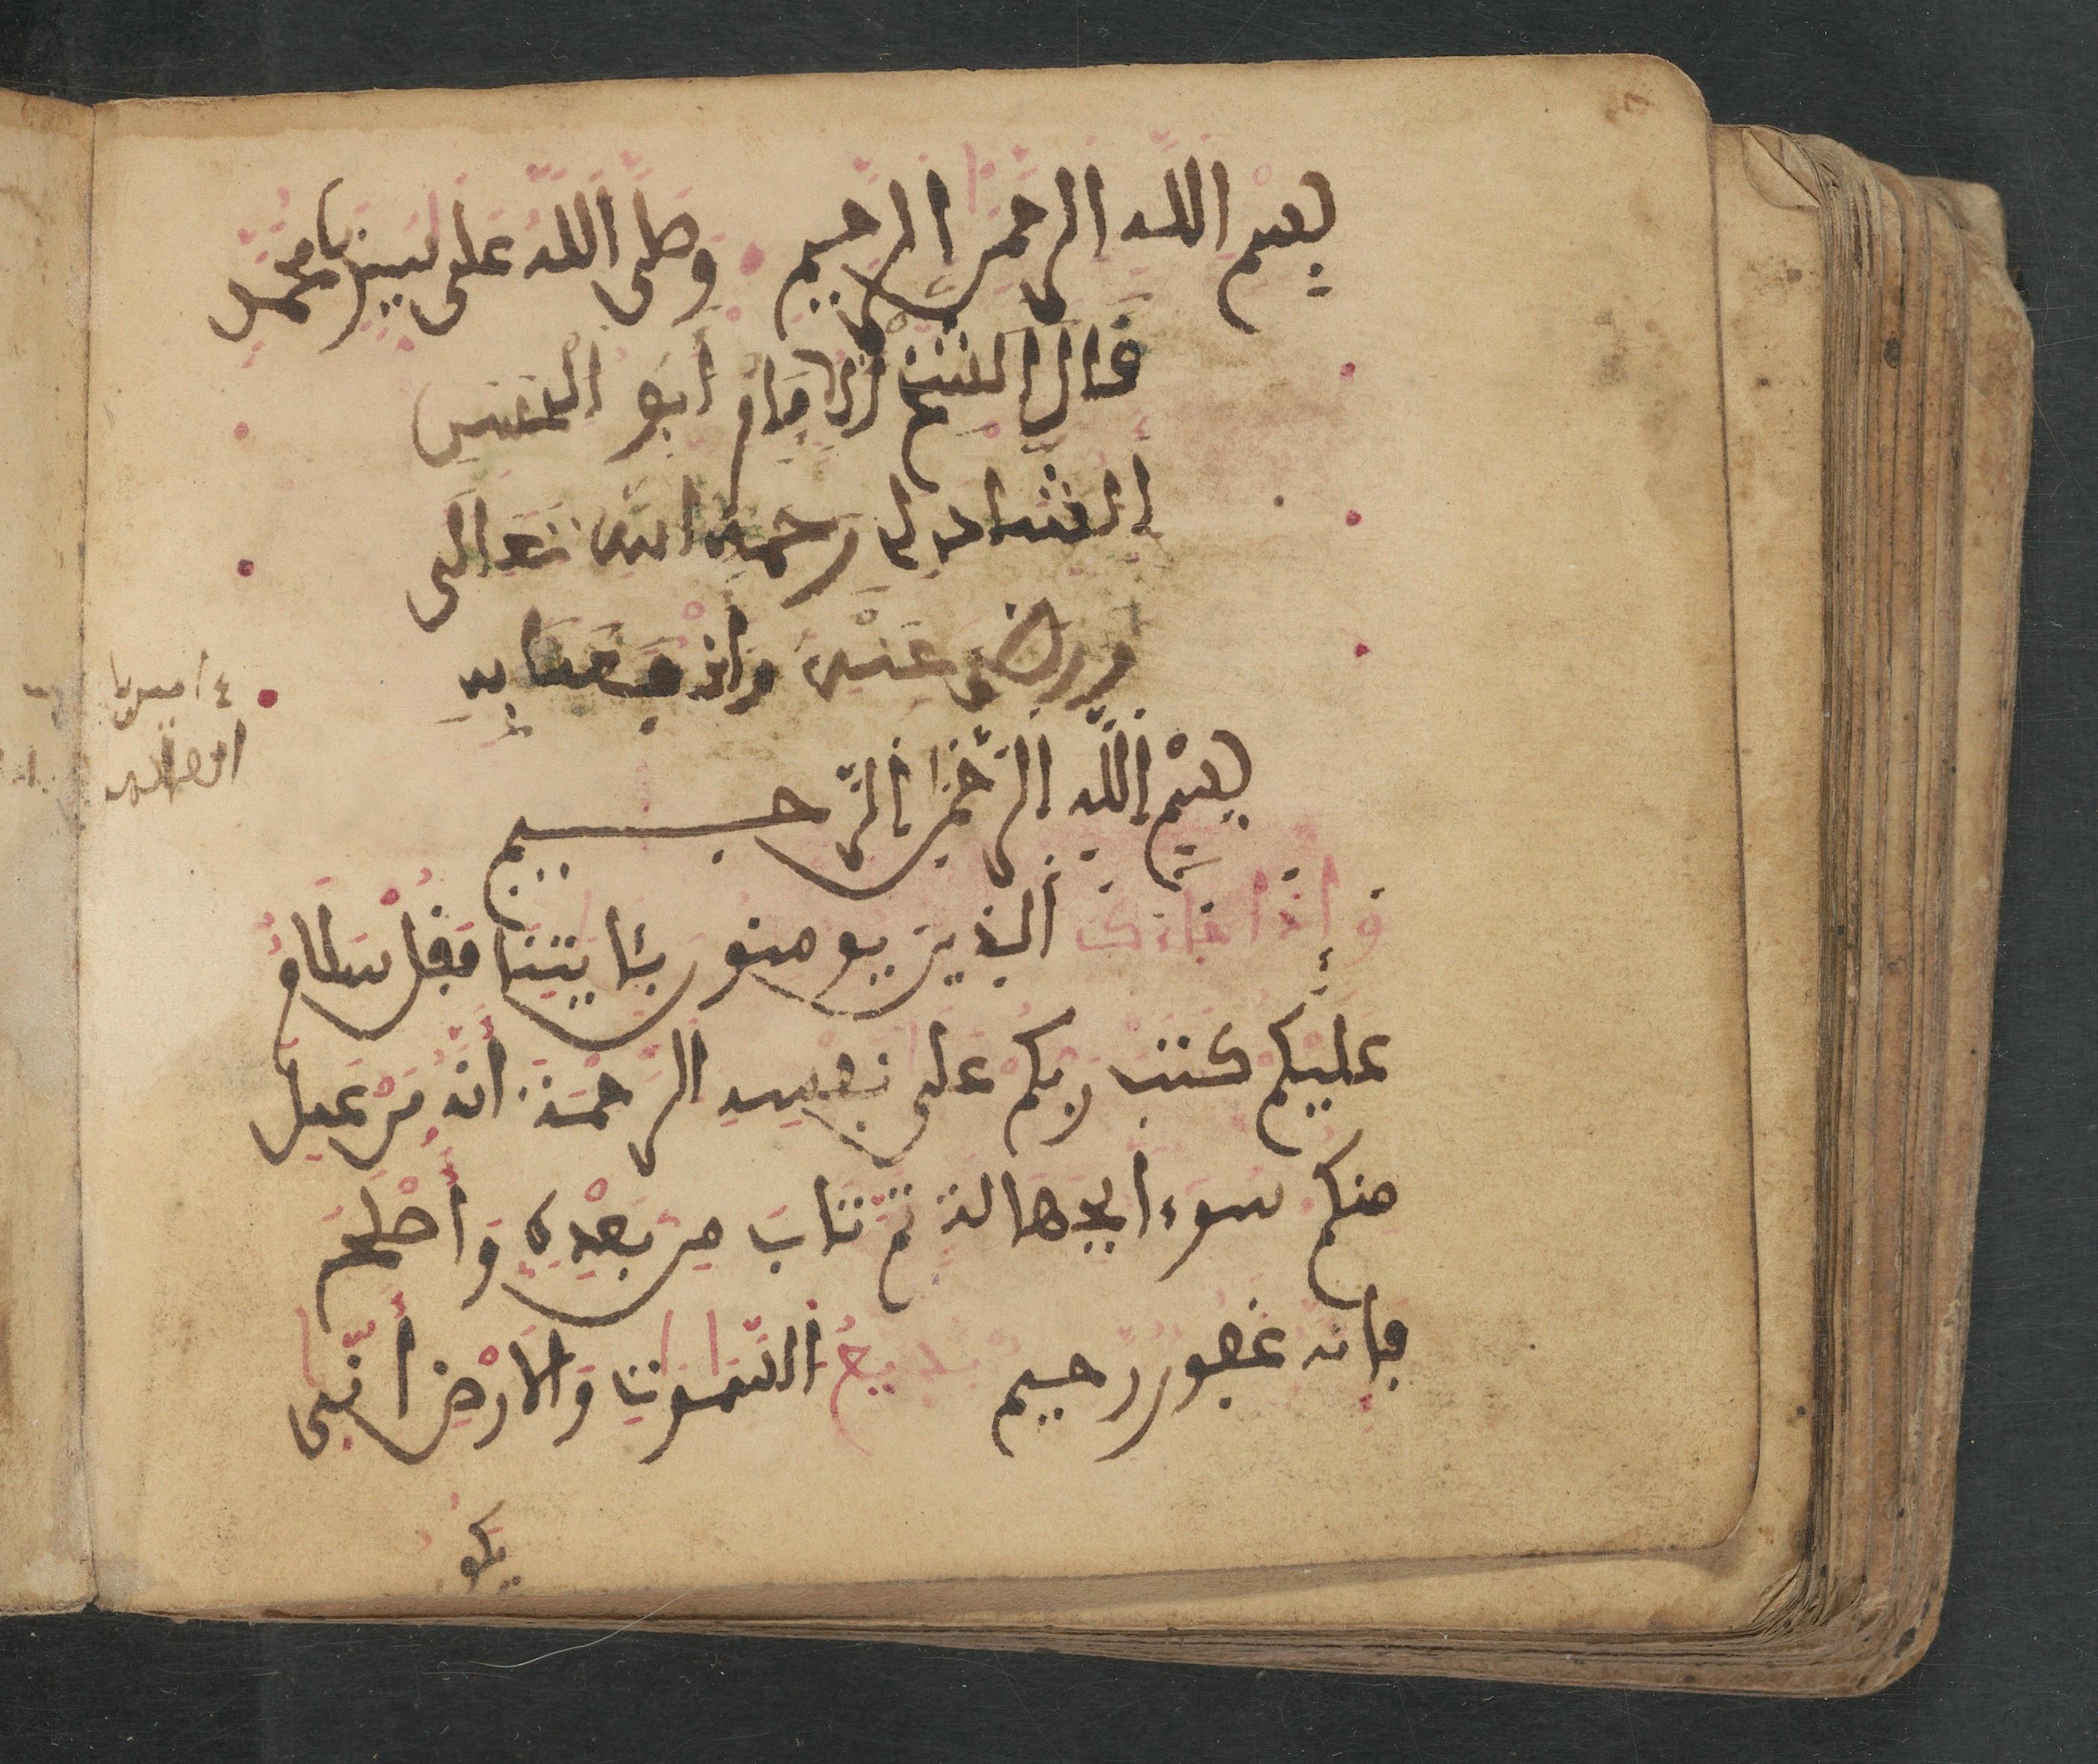 بسم الله الرحمن الرحيم وصلى الله على سيدنا محمد
قال الشيخ الامام أبو الحسن
الشاذلي رحمه الله تعالى
ورضي عنه وانفعنا به
بِسْمِ اللهِ الرَّحْمَٰنِ الرَّحِيمِ
وإذا جاءك الذين يومنون بئايتنا فقل سلام
عليكم كتب ربكم على نفسه الرحمة أنه من عمل
منكم سوءا بجهالة ثم تاب من بعده وأصلح
فإنه غفور رحيم بديع السموت والارض أنى
يكو